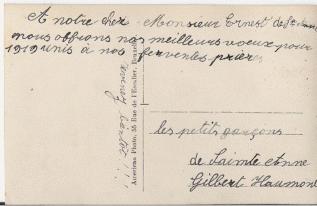 A notre cher Monsieur Ernest de Ste
nous offrons nos meilleurs voeux pour
1919 unis à nos ferventes prières
American Photo, 55 Rue de l'Escalier, Bruxelles
les petits garçons
de Sainte Anne
Gilbert Haumont